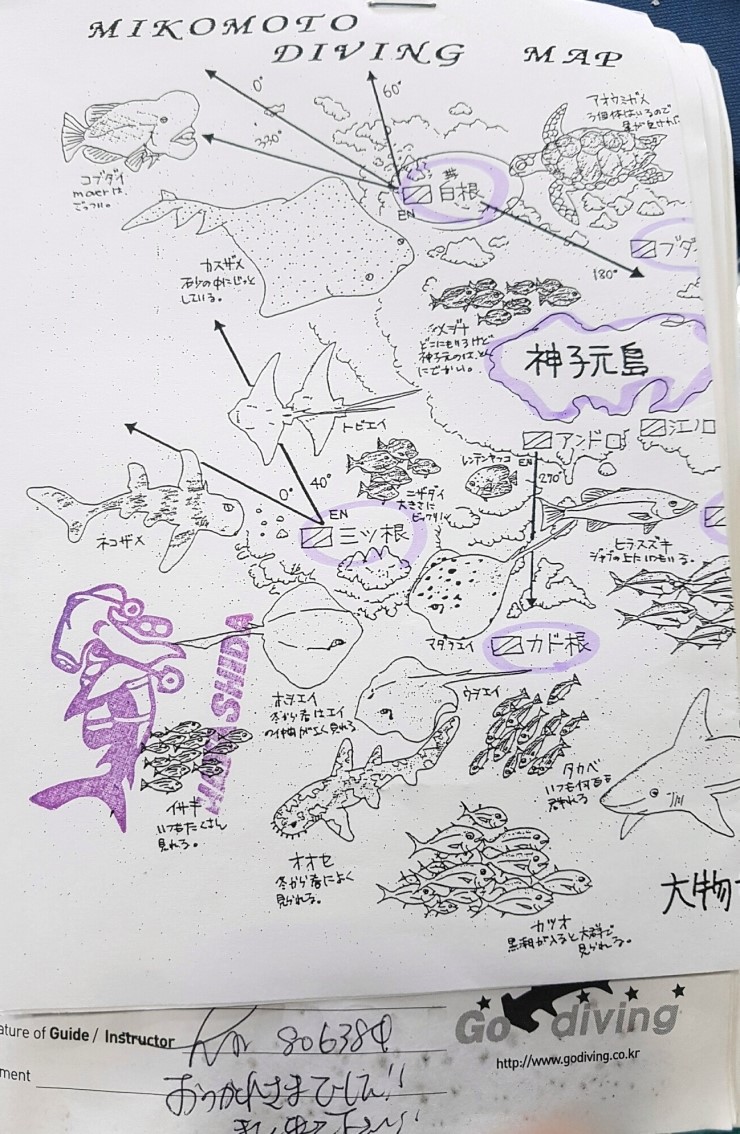 MIKOMOTO
DIVING MAP
0°
60°
330°
アオウミガメ
3個体はいるので
コブダイ
maerは、
ごっつい。
白根
EN
ブダ
180°
カスザメ
砂の中にじっと
している。
メジナ
どこにもいるけど
神子元のは、とん
にでかい。
神子元島
トビエイ
アンドロ
江ノ口
レンテンヤッコ
EN
270°
0°
40°
EN
ニザダイ
大きさに
ビックリ
三ツ根
ネコザメ
ヒラスズキ
いつもいる。
マダラエイ
カド根
SHIDA
ホシエイ
冬から春はエイ
の仲間がよく見れる
ウチエイ
イサギ
いつもたくさん
見れる。
タカベ
いつも何百も
群れる
オオセ
冬から春によく
見られる。
大物
カツオ
黒潮が入ると大群で
見られる。
ature of Guide / Instructor
806384
Go diving
http://www.godiving.co.kr
ment
おつかれさまでした!!